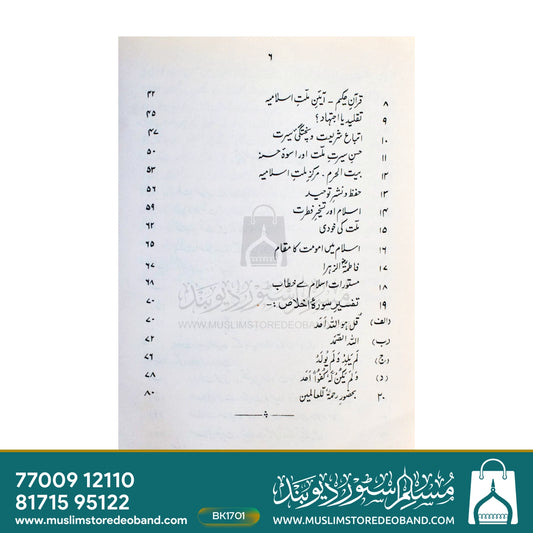 ۶
۸ قرآنِ حکیم - آئینِ ملتِ اسلامیہ ۴۲
۹ تقلید یا اجتہاد؟ ۴۵
۱۰ اتباعِ شریعت و پختگیٔ سیرت ۴۷
۱۱ حسنِ سیرتِ ملت اور اسوۂ حسنہ ۵۰
۱۲ بیت الحرم - مرکزِ ملتِ اسلامیہ ۵۳
۱۳ حفظ و نشرِ توحید ۵۶
۱۴ اسلام اور تسخیرِ فطرت ۵۹
۱۵ ملت کی خودی ۶۲
۱۶ اسلام میں امومت کا مقام ۶۵
۱۷ فاطمۃ الزہراؓ ۶۷
۱۸ مستوراتِ اسلام سے خطاب ۶۸
۱۹ تفسیرِ سورۂ اخلاص :- ۷۰
(الف) قُل ہو اللہ اَحَد ۷۰
(ب) اللہ الصَّمَد ۷۲
(ج) لَمْ یَلِدْ وَلَمْ یُولَدْ ۷۶
(د) وَلَمْ یَکُنْ لَّہٗ کُفُواً اَحَد ۷۸
۲۰ بحضورِ رحمۃً للعالمین ۸۰
مسلم اسٹور دیوبند
WWW.MUSLIMSTOREDEOBAND.COM
77009 12110
81715 95122
www.muslimstoredeoband.com
BK1701
مسلم اسٹور دیوبند
WWW.MUSLIMSTOREDEOBAND.COM